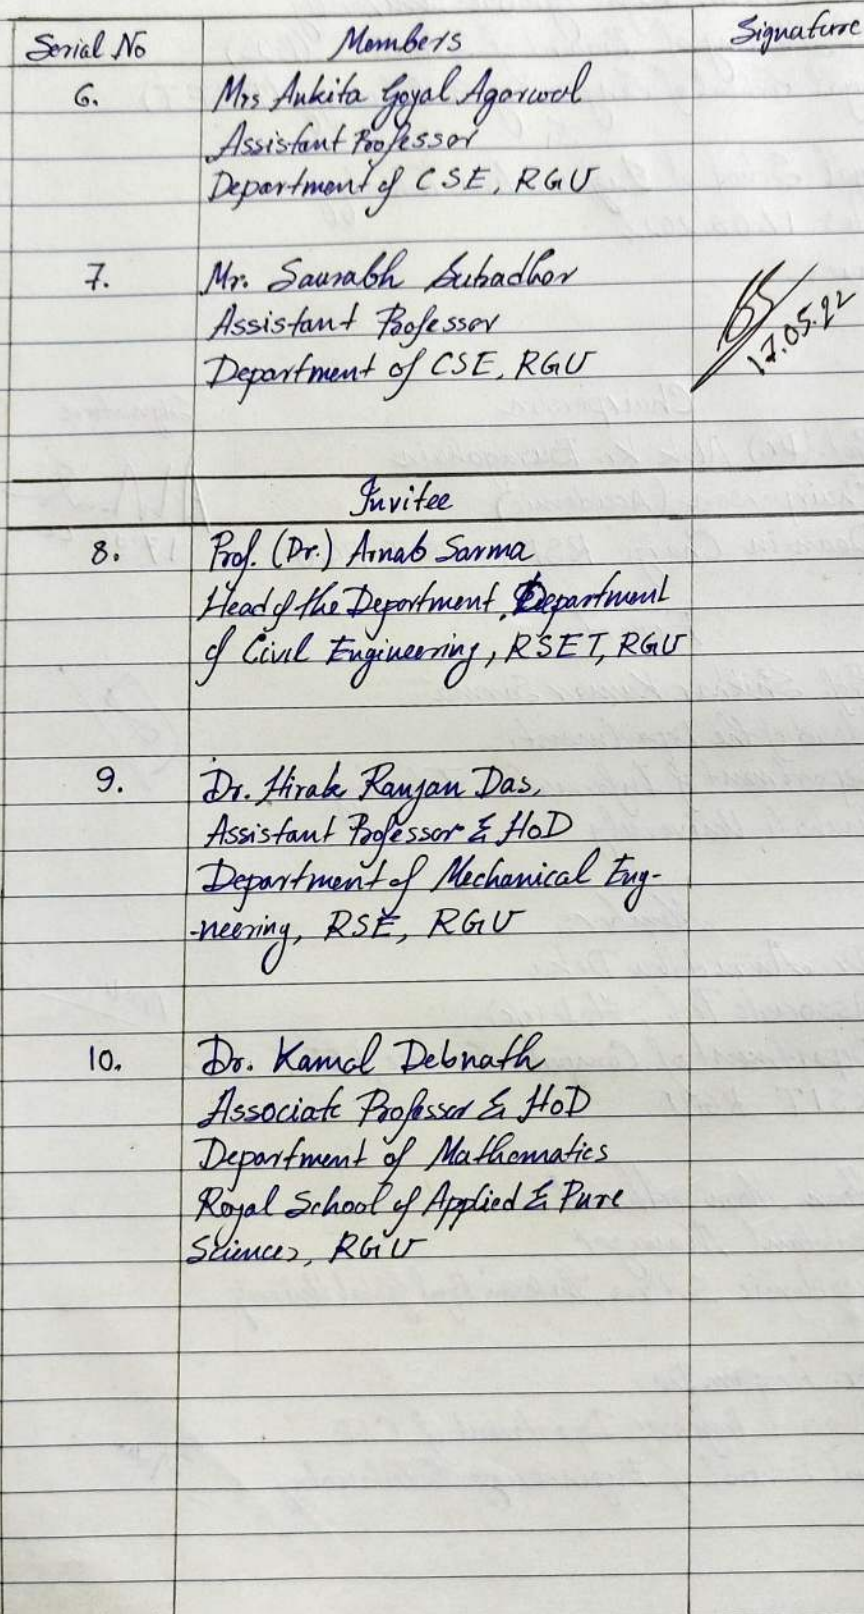 Serial No Members Signature
6. Mrs Ankita Goyal Agarwal
Assistant Professor
Department of CSE, RGU
7. Mr. Saurabh Sutradhar
Assistant Professor
Department of CSE, RGU
17.05.22
Invitee
8. Prof. (Dr.) Arnab Sarma
Head of the Department, Department
of Civil Engineering, RSET, RGU
9. Dr. Hirak Ranjan Das,
Assistant Professor & HoD
Department of Mechanical Eng-
-neering, RSE, RGU
10. Dr. Kamal Debnath
Associate Professor & HoD
Department of Mathematics
Royal School of Applied & Pure
Sciences, RGU